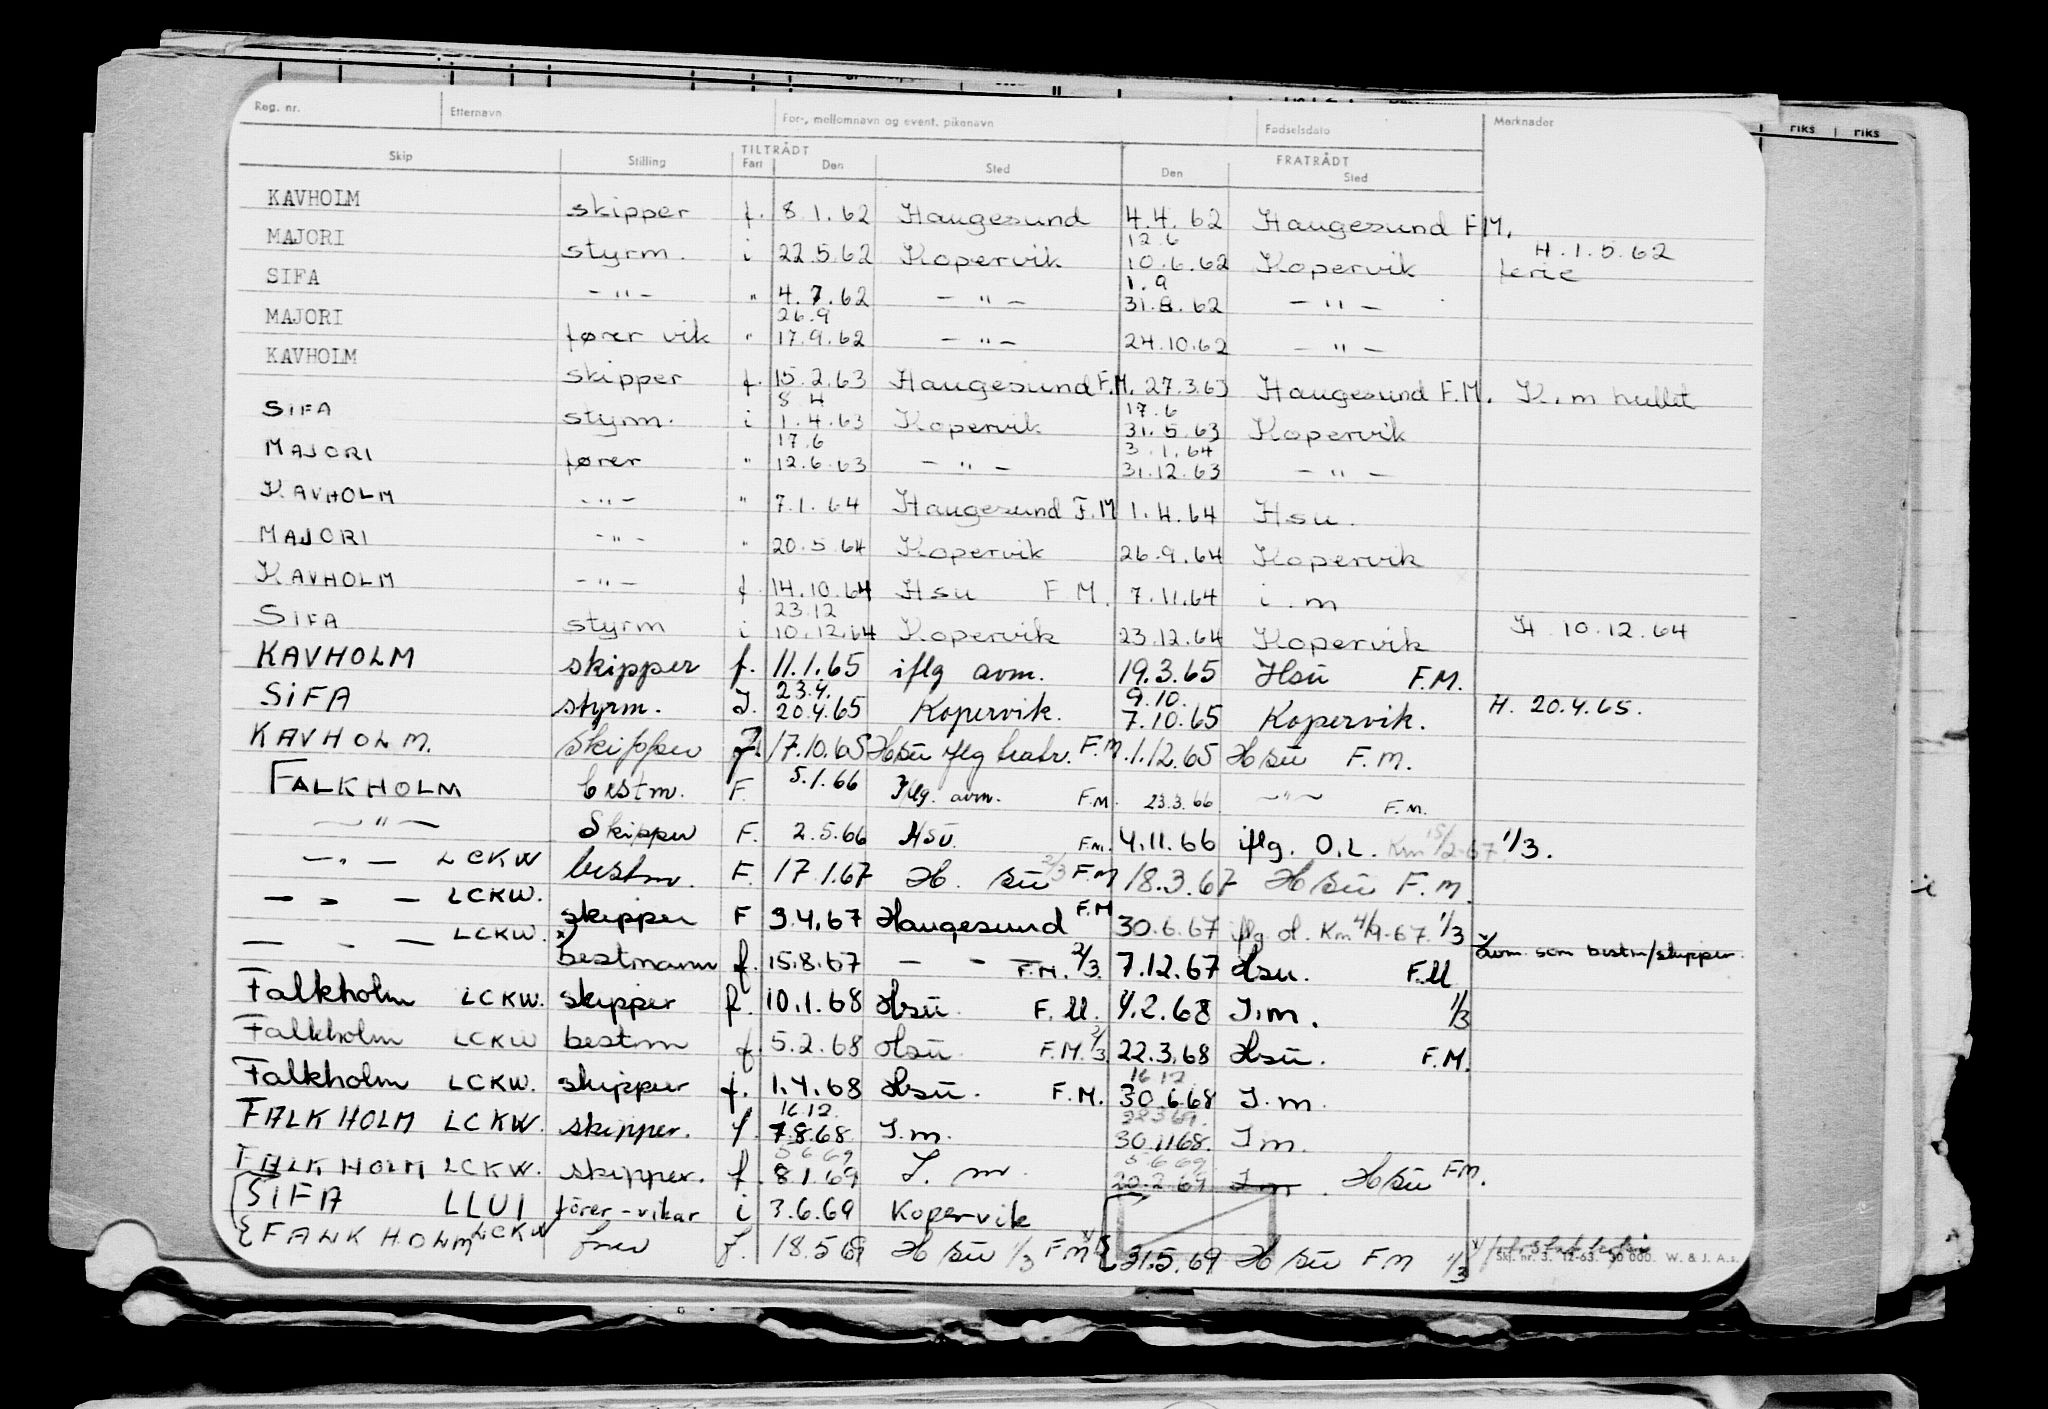 riks riks
Reg. nr. Etternavn For-, mellomnavn og event. pikenavn Fødselsdato Merknader
TILTRÅDT FRATRÅDT
Skip Stilling Fart Den Sted Den Sted
KAVHOLM skipper f. 8.1.62 Haugesund 4.4.62 Haugesund F.M. H.1.5.62
12.6
MAJORI styrm. i 22.5.62 Kopervik 10.6.62 Kopervik ferie
1.9
SIFA -"- " 4.7.62 -"- 31.8.62 -"-
26.9
MAJORI fører vik " 17.9.62 -"- 24.10.62 -"-
KAVHOLM skipper f. 15.2.63 Haugesund F.M. 27.3.63 Haugesund F.M. K.m hullet
8.4 17.6
SIFA styrm. i 1.4.63 Kopervik 31.5.63 Kopervik
17.6 3.1.64
MAJORI fører " 12.6.63 -"- 31.12.63 -"-
KAVHOLM -"- " 7.1.64 Haugesund F.M 1.4.64 Hsu.
MAJORI -"- " 20.5.64 Kopervik 26.9.64 Kopervik
KAVHOLM -"- f 14.10.64 Hsu F.M. 7.11.64 i.m
23.12
SIFA styrm i 10.12.64 Kopervik 23.12.64 Kopervik H. 10.12.64
KAVHOLM skipper f. 11.1.65 iflg avm. 19.3.65 Hsu F.M.
23.4. 9.10.
SIFA styrm. I. 20.4.65 Kopervik. 7.10.65 Kopervik. H. 20.4.65.
KAVHOLM. skipper f. 17.10.65 Hsu iflg F.M. 1.12.65 Hsu F.M.
FALKHOLM bestm. F. 5.1.66 Iflg. avm. F.M. 23.3.66 -"- F.M.
-"- Skipper F. 2.5.66 Hsu. F.M. 4.11.66 iflg. O.L. Km 15/2-67. 1/3.
-"- LCKW bestm. F. 17.1.67 H.su 2/3 F.M 18.3.67 Hsu F.M.
-"- LCKW. skipper F 3.4.67 Haugesund F.M 30.6.67 iflg ol. Km 4/9-67. 1/3
- - - LCKW. x) bestmann f. 15.8.67 - - - F.M. 2/3. 7.12.67 Hsu. F.M x avm. som bestm/skipper.
Falkholm LCKW. skipper f. 10.1.68 Hsu. F.M. 4.2.68 I.m. 1/3
Falkholm LCKW bestm f 5.2.68 Hsu. F.M. 2/3. 22.3.68 Hsu. F.M.
16.12
Falkholm LCKW. skipper f. 1.4.68 Hsu. F.M. 30.6.68 I.m.
16.12. 22.3.69.
FALKHOLM LCKW. skipper. f. 7.8.68 I.m. 30.11.68. I m.
5.6.69 5.6.69.
FALKHOLM LCKW. skipper. f. 8.1.69 I. m. 20.2.69 I m. Hsu F.M.
SIFA LLUI fører-vikar i 3.6.69 Kopervik
FALKHOLM LCKW fører f. 18.5.69 Hsu 1/3 F.M 31.5.69 Hsu F.M 1/3
Skj. nr. 3. 12-63. 30 000. W. & J. A.s.